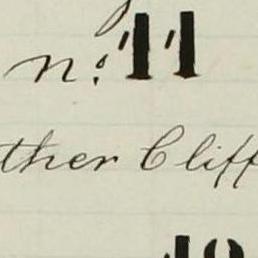 n: 11
ther Cliff